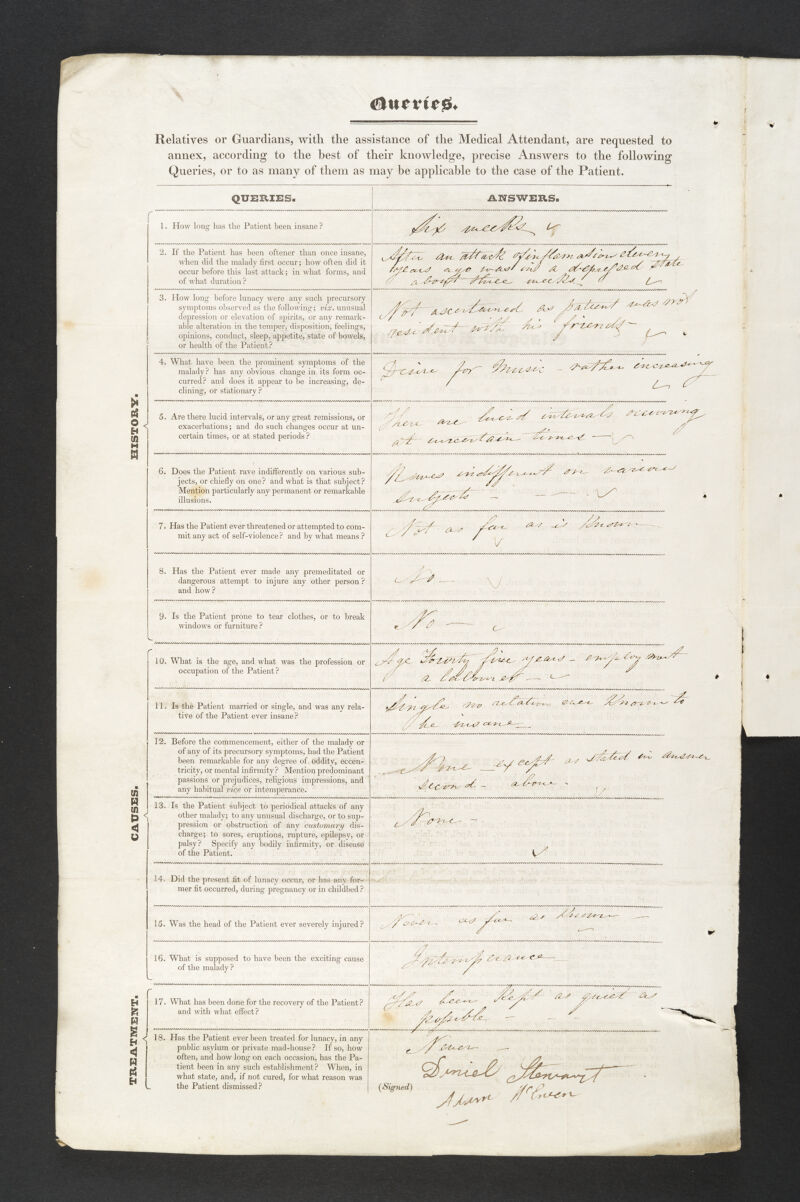 Queries.
Relatives or Guardians, with the assistance of the Medical Attendant, are requested to
annex, according to the best of their knowledge, precise Answers to the following
Queries, or to as many of them as may be applicable to the case of the Patient.
QUERIES.
ANSWERS.
HISTORY.
1. How long has the Patient been insane?
Six weeks
2. If the Patient has been oftener than once insane,
when did the malady first occur; how often did it
occur before this last attack; in what forms, and
of what duration?
After an attack of inflamation eleven
years ago was in a depressed state
about three weeks
3. How long before lunacy were any such precursory
symptoms observed as the following; viz. unusual
depression or elevation of spirits, or any remark-
able alteration in the temper, disposition, feelings,
opinions, conduct, sleep, appetite, state of bowels,
or health of the Patient?
Not ascertained as patient was not
resident with his friends
4. What have been the prominent symptoms of the
malady? has any obvious change in its form oc-
curred? and does it appear to be increasing, de-
clining, or stationary?
Desire for Music - rather increasing
5. Are there lucid intervals, or any great remissions, or
exacerbations; and do such changes occur at un-
certain times, or at stated periods?
There are lucid intervals occurring
at uncertain times —
6. Does the Patient rave indifferently on various sub-
jects, or chiefly on one? and what is that subject?
Mention particularly any permanent or remarkable
illusions.
Raves indifferent on various
subjects -
7. Has the Patient ever threatened or attempted to com-
mit any act of self-violence? and by what means?
Not as far as is Known
8. Has the Patient ever made any premeditated or
dangerous attempt to injure any other person?
and how?
No —
9. Is the Patient prone to tear clothes, or to break
windows or furniture?
No —
CAUSES.
10. What is the age, and what was the profession or
occupation of the Patient?
Age Fourty five years - employment
a labourer -
11. Is the Patient married or single, and was any rela-
tive of the Patient ever insane?
Single no relation ever Known to
be insane
12. Before the commencement, either of the malady or
of any of its precursory symptoms, had the Patient
been remarkable for any degree of oddity, eccen-
tricity, or mental infirmity? Mention predominant
passions or prejudices, religious impressions, and
any habitual vice or intemperance.
None — except as stated in answer
second - above -
13. Is the Patient subject to periodical attacks of any
other malady; to any unusual discharge, or to sup-
pression or obstruction of any customary dis-
charge; to sores, eruptions, rupture, epilepsy, or
palsy? Specify any bodily infirmity, or disease
of the Patient.
None -
14. Did the present fit of lunacy occur, or has any for-
mer fit occurred, during pregnancy or in childbed?
15. Was the head of the Patient ever severely injured?
Never as far as Known —
16. What is supposed to have been the exciting cause
of the malady?
Intemperance
TREATMENT.
17. What has been done for the recovery of the Patient?
and with what effect?
Has been Kept as quiet as
possible -
18. Has the Patient ever been treated for lunacy, in any
public asylum or private mad-house? If so, how
often, and how long on each occasion, has the Pa-
tient been in any such establishment? When, in
what state, and, if not cured, for what reason was
the Patient dismissed?
Never —
(Signed)
Daniel Stewart
Adam McEwen